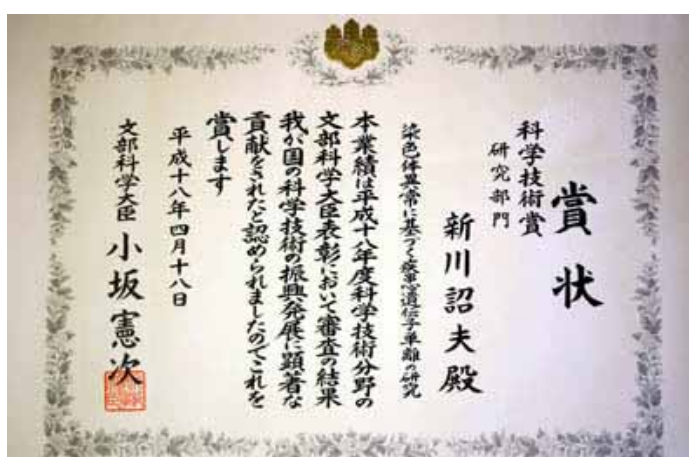 賞状
科学技術賞
研究部門
新川詔夫殿
染色体異常に基づく疾患遺伝子単離の研究
本業績は平成十八年度科学技術分野の
文部科学大臣表彰において審査の結果
我が国の科学技術の振興発展に顕著な
貢献をされたと認められましたのでこれを
賞します
平成十八年四月十八日
文部科学大臣 小坂憲次